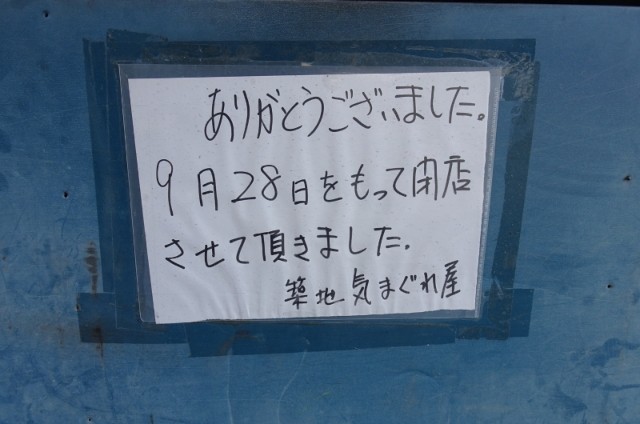 ありがとうございました。
9月28日をもって閉店
させて頂きました.
築地気まぐれ屋